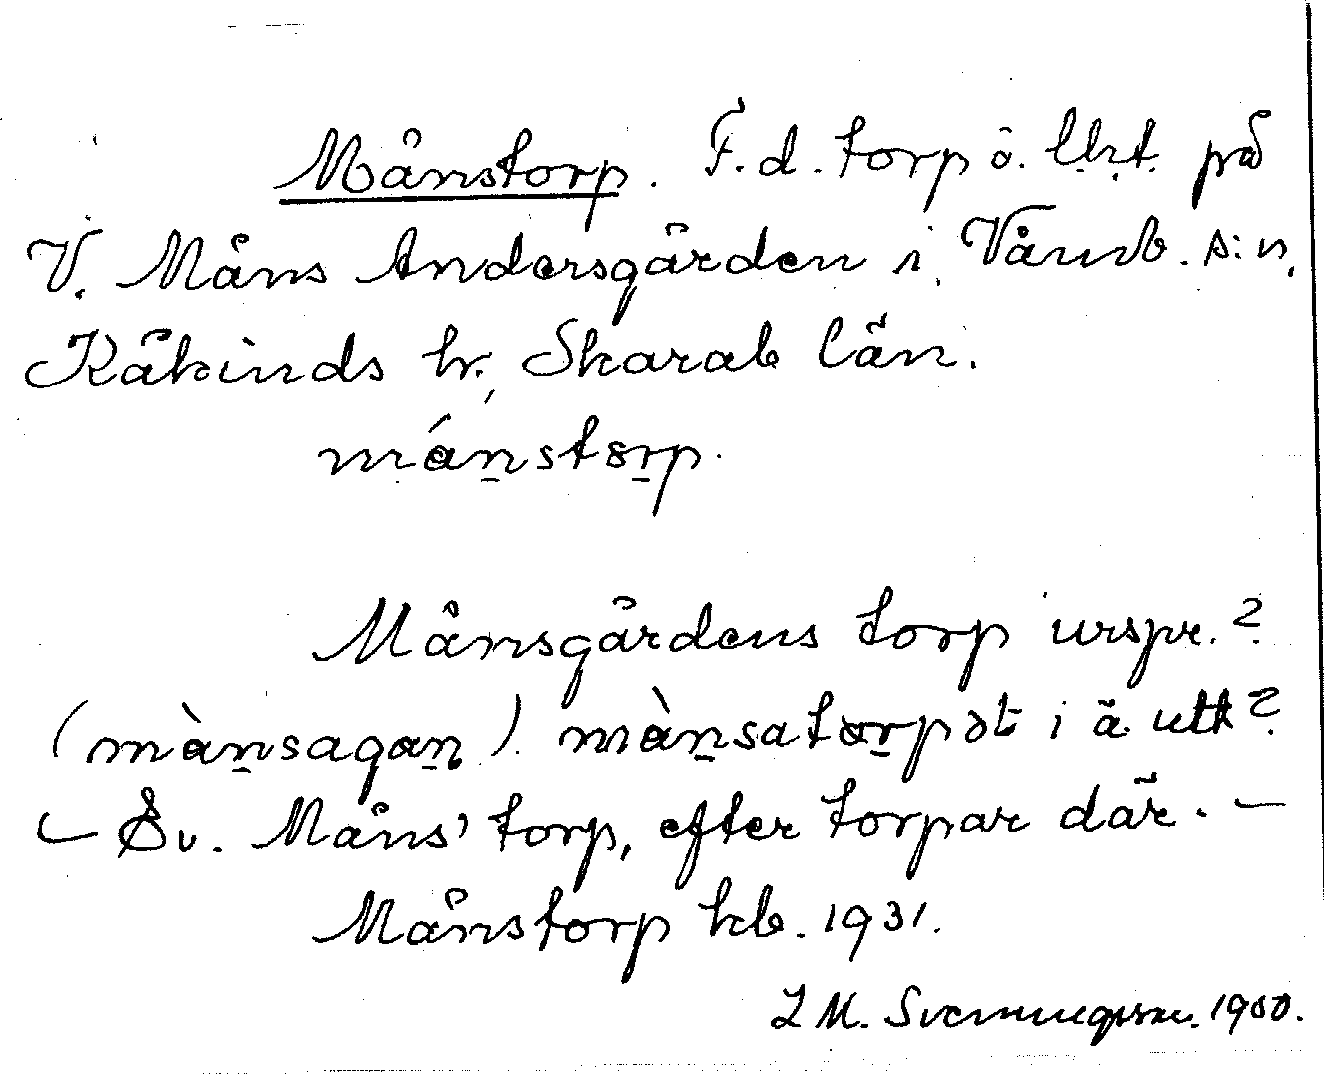 Månstorp. F.d. torp o. lht. på
V. Måns Andersgården i Våmb. s:n,
Kåkinds hr, Skarab län.
mánstorp.
Månsgårdens torp urspr.?
(mànsagan) mànsatorpət i ä utt?
— Sv. Måns' torp, efter torpar där. —
Månstorp kb. 1931.
1950.